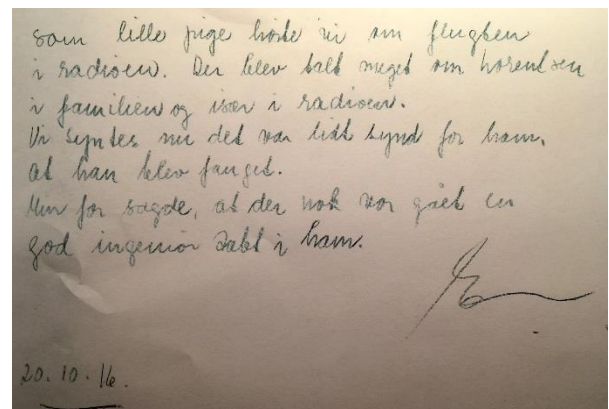 som lille pige hørte vi om flugten
i radioen. Der blev talt meget om Lorentzen
i familien og især i radioen.
Vi syntes nu det var lidt synd for ham,
at han blev fanget.
Min far sagde, at der nok var gået en
god ingeniør tabt i ham.
20.10.16.